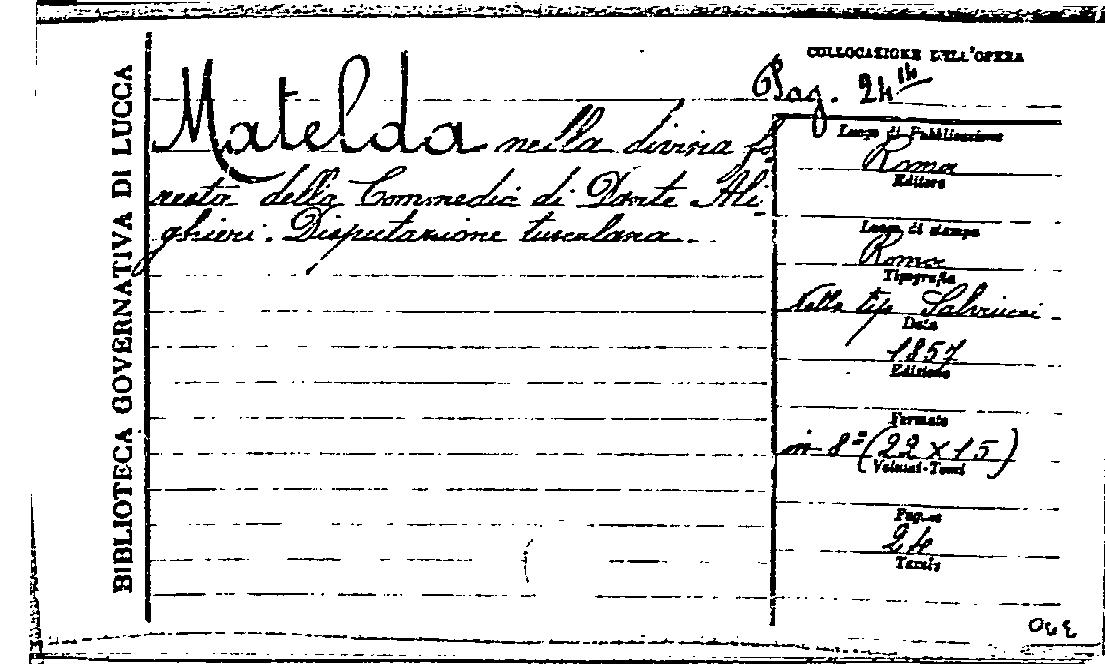 BIBLIOTECA GOVERNATIVA DI LUCCA
Matelda nella divina fo-
resta della Commedia di Dante Ali-
ghieri. Disputazione tusculana.
COLLOCAZIONE DELL'OPERA
Pag. 24
Luogo di Pubblicazione
Roma
Editore
Luogo di stampa
Roma
Tipografia
Nella tip. Salviucci
Data
1857
Edizione
Formato
in 8º (22 x 15)
Volumi-Tomi
Pagine
24
Tavole